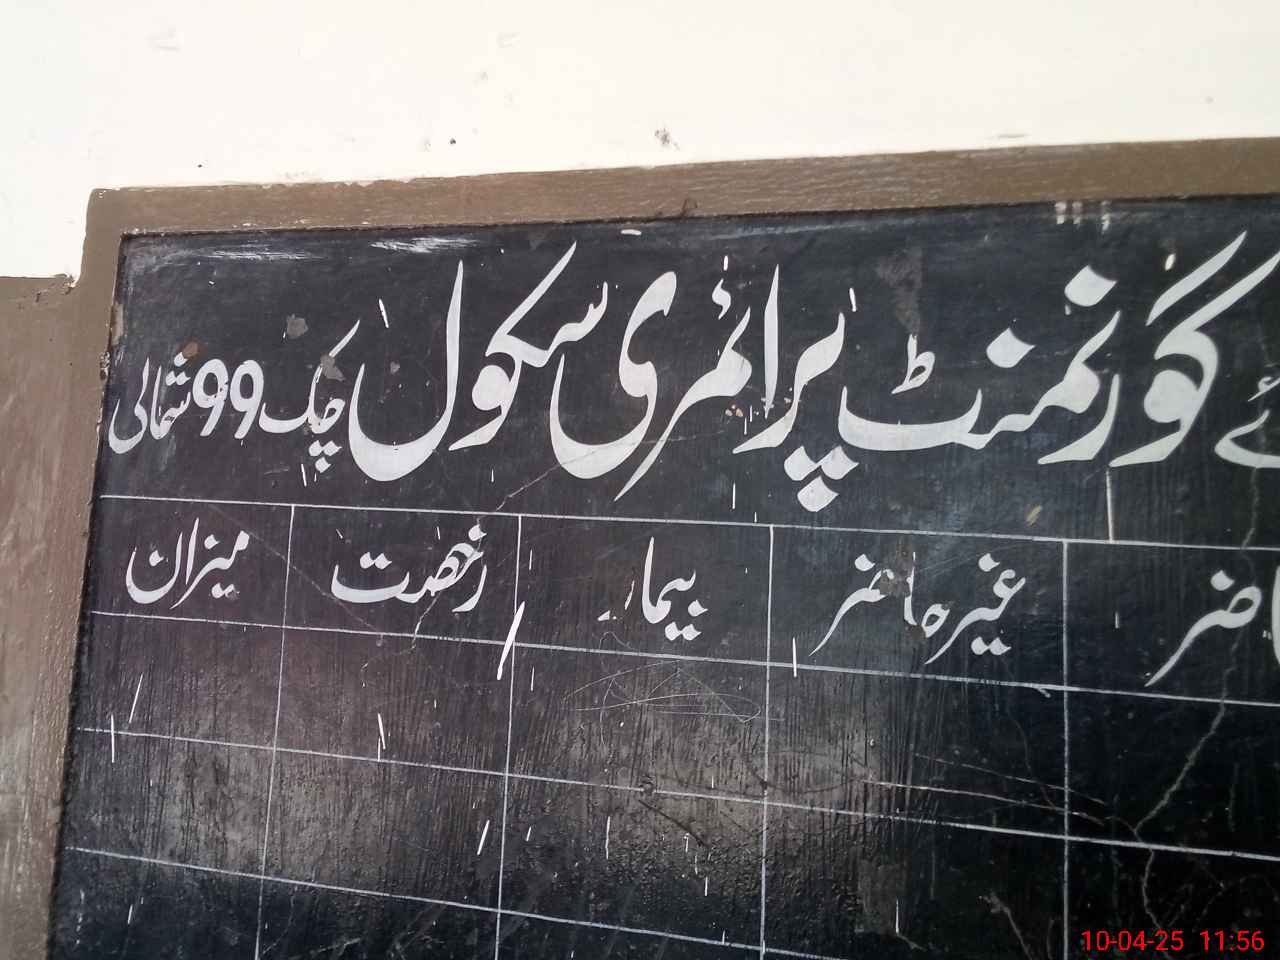 ئے گورنمنٹ پرائمری سکول چک 99 شمالی
غیر حاضر بیمار رخصت میزان
10-04-25 11:56